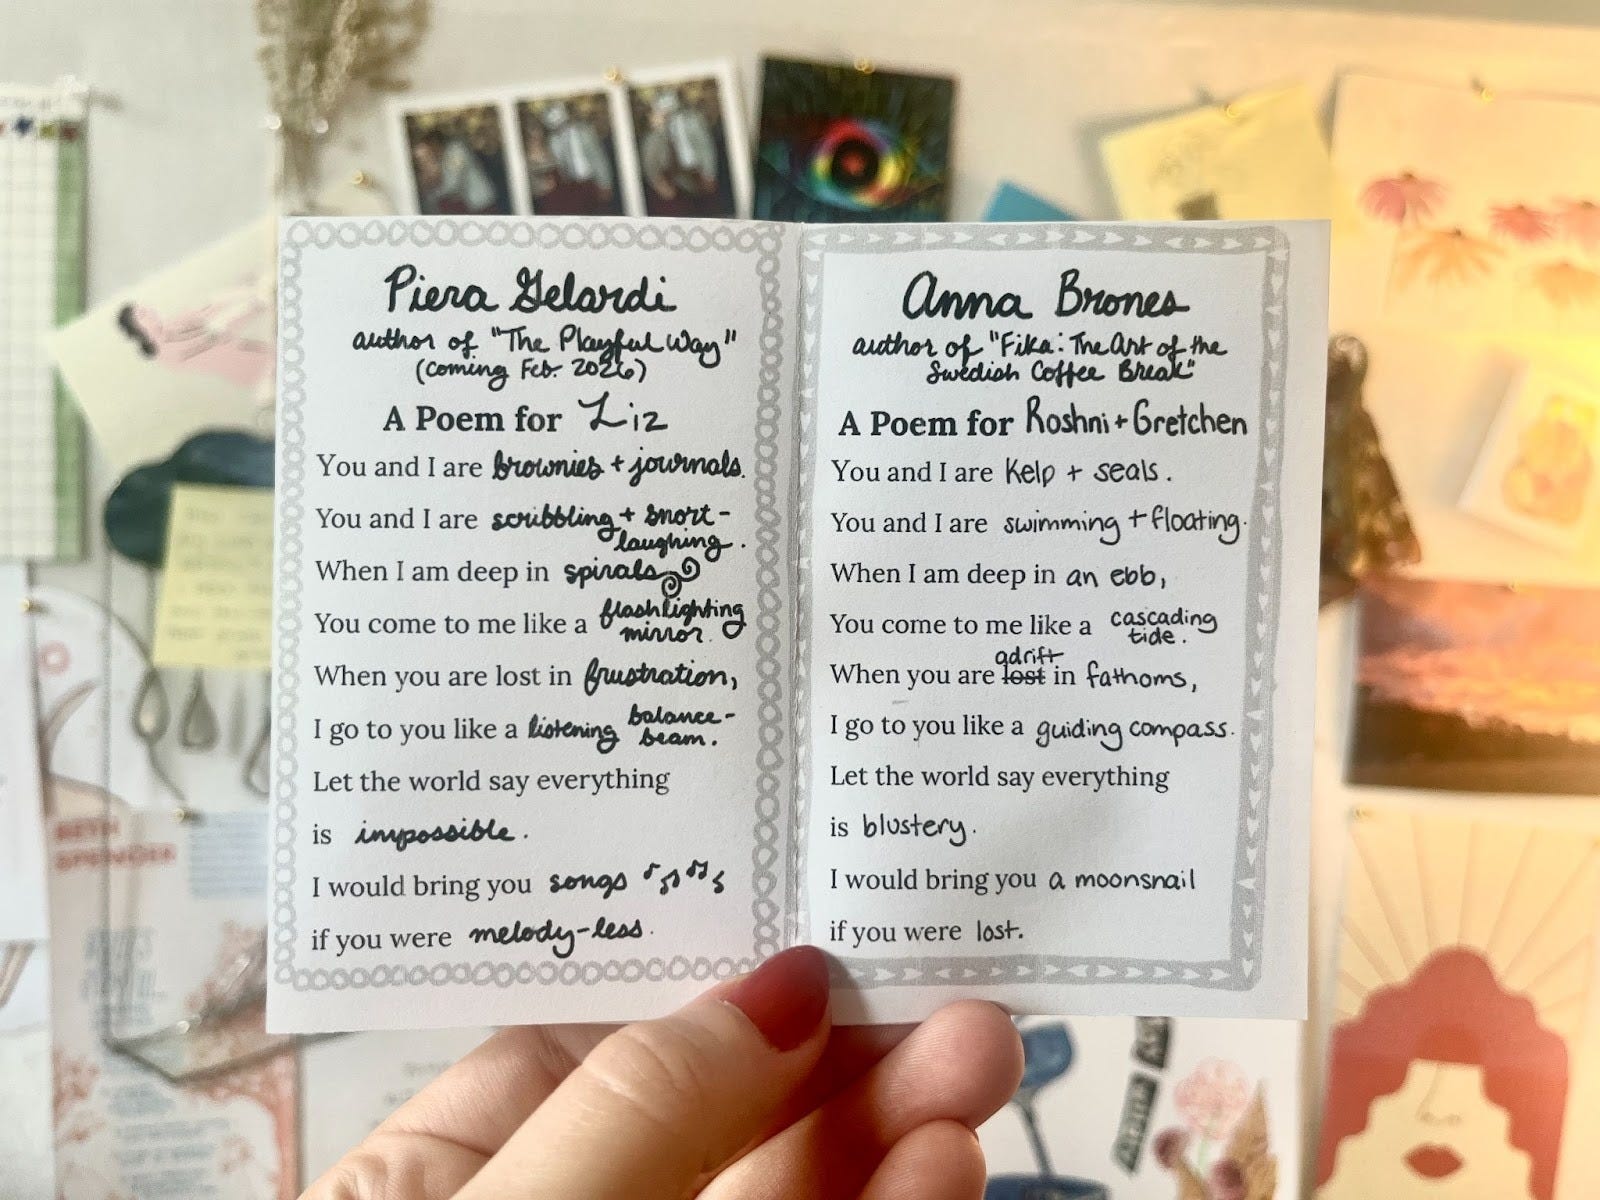 Piera Gelardi
author of "The Playful Way"
(coming Feb. 2026)
A Poem for Liz
You and I are brownies + journals.
You and I are scribbling + snort-
laughing.
When I am deep in spirals
You come to me like a flashlighting
mirror.
When you are lost in frustration,
I go to you like a listening balance-
beam.
Let the world say everything
is impossible.
I would bring you songs
if you were melody-less.
Anna Brones
author of "Fika: The Art of the
Swedish Coffee Break"
A Poem for Roshni + Gretchen
You and I are kelp + seals.
You and I are swimming + floating.
When I am deep in an ebb,
You come to me like a cascading
tide.
When you are lost adrift in fathoms,
I go to you like a guiding compass.
Let the world say everything
is blustery.
I would bring you a moonsnail
if you were lost.
BETH
SPENCER